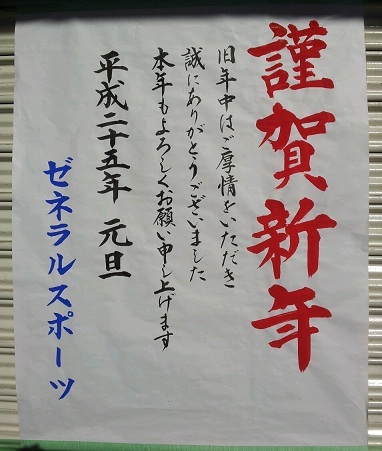 謹賀新年
旧年中はご厚情をいただき
誠にありがとうございました
本年もよろしくお願い申し上げます
平成二十五年 元旦
ゼネラルスポーツ